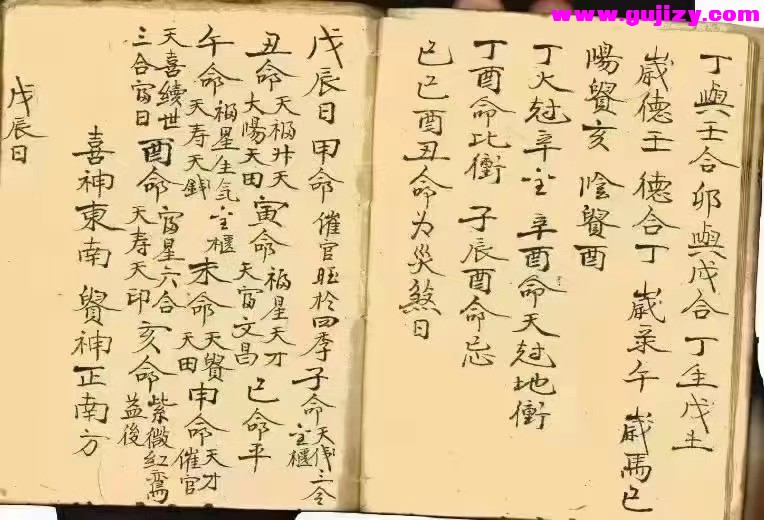 www.gujizy.com
丁與壬合卯與戌合 丁生戊土
歲德壬 德合丁 歲午 歲馬巳
陽貴亥 陰貴酉
丁火尅辛金 辛酉命天尅地衝
丁酉命比衝 子辰酉命忌
巳酉丑命为災煞日
戊辰日甲命催官旺於四季子命天三合金櫃
丑命天福升天太陽天田寅命福星天才天富文昌巳命平
午命福星生气金櫃天寿天錢未命天貴天田申命天才催官
天喜續世三合富日酉命富星六合天寿天印亥命紫微紅鸞益後
喜神東南 貴神正南方
戊辰日